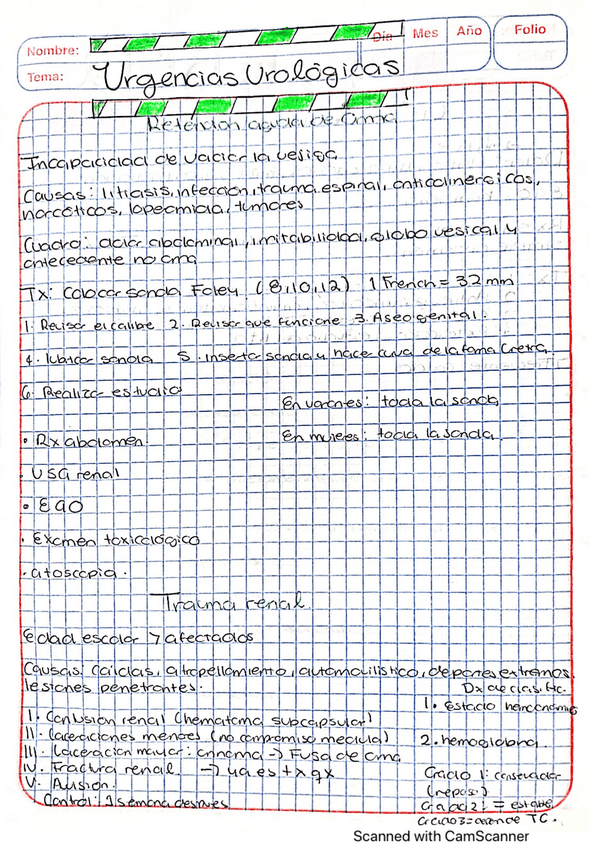 Nombre:
Día Mes Año Folio
Tema: Urgencias Urológicas
Retención aguda de orina
Incapacidad de vaciar la vejiga
Causas: litiasis, infección, trauma espinal, anticolinergicos,
narcóticos, loperamida, tumores
Cuadro: dolor abdominal, irritabilidad, globo vesical y
antecedente no orina
Tx: Colocar sonda Foley (8, 10, 12) 1 French = 32 mm
1. Revisar el calibre 2. Revisar que funcione 3. Aseo genital.
4. lubricar sonda 5. inserta sonda y hace curva de la forma Uretra
6. Realiza estudio
En varones: toda la sonda
• Rx abdomen
En mujeres: toda la sonda
• USG renal
• EGO
• Examen toxicológico
• otoscopia.
Trauma renal
Edad escolar > afectados
Causas: caídas, atropellamiento, automovilistico, deportes extremos,
lesiones penetrantes.
Dx de clasific.
1. estado hemodinamic
I. Contusión renal (hematoma subcapsular)
II. Laceraciones menores (no compromiso medular)
2. hemoglobina.
III. Laceracion mayor: → Fuga de orina
IV. Fractura renal →
Grado 1: conservador
(reposo)
V. Avulsion.
Control: 1 semana despues
Grado 2: =
Grado 3 = TC.
Scanned with CamScanner